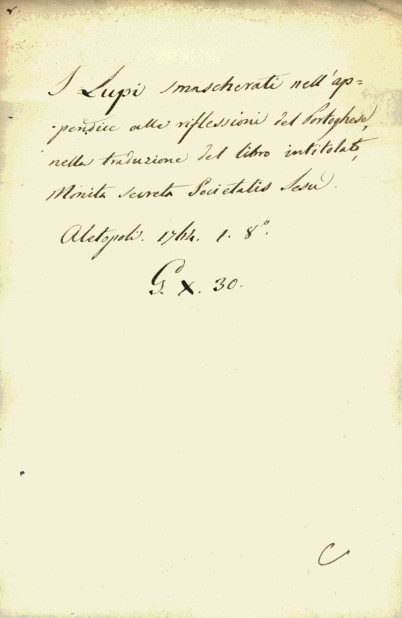 I Lupi smascherati nell'ap=
pendice alle riflessioni del Portoghese,
nella traduzione del libro intitolato,
Monita secreta Societatis Jesu.
Aletopoli. 1764. 1. 8°.
G. X. 30.
C